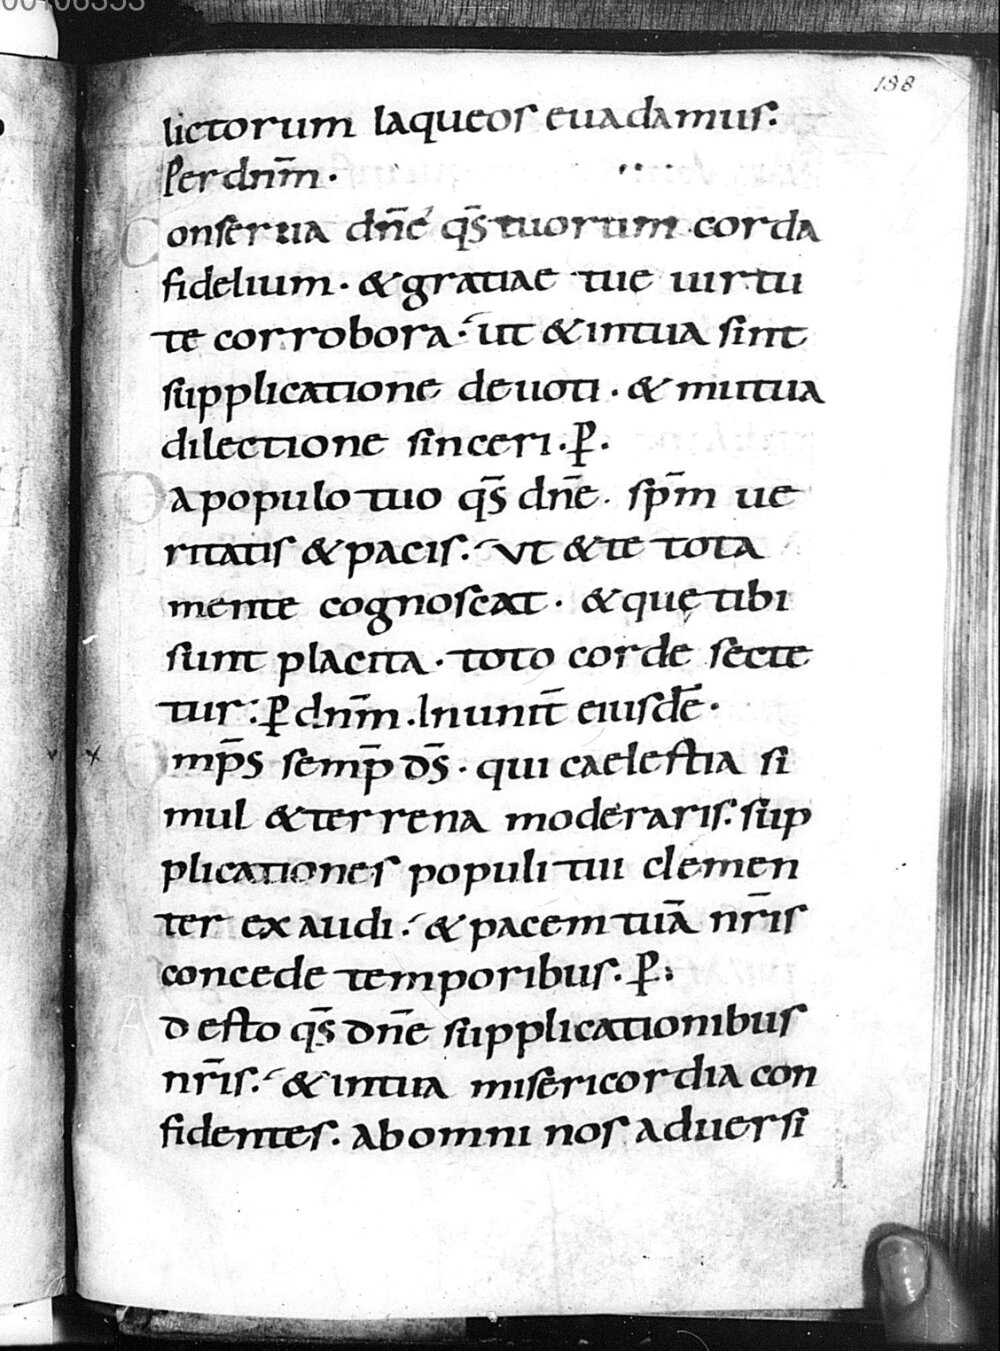 00106353
138
lictorum laqueos euadamus:
Per dnm̄ ·
Conserua dn̄e qs̄ tuorum corda
fidelium · & gratiae tue uirtu
te corrobora · ut & in tua sint
supplicatione deuoti · & mutua
dilectione sinceri · P̄ ·
Da populo tuo qs̄ dn̄e · spm̄ ue
ritatis & pacis · Vt & te tota
mente cognoscat · & quę tibi
sunt placita · toto corde secte
tur : P̄ dnm̄ · In unit̄ eiusdē ·
Omp̄s semp̄ ds̄ · qui caelestia si
mul & terrena moderaris · sup
plicationes populi tui clemen
ter exaudi · & pacem tuā nr̄is
concede temporibus · P̄ ·
Adesto qs̄ dn̄e supplicationibus
nr̄is · & in tua misericordia con
fidentes · ab omni nos aduersi